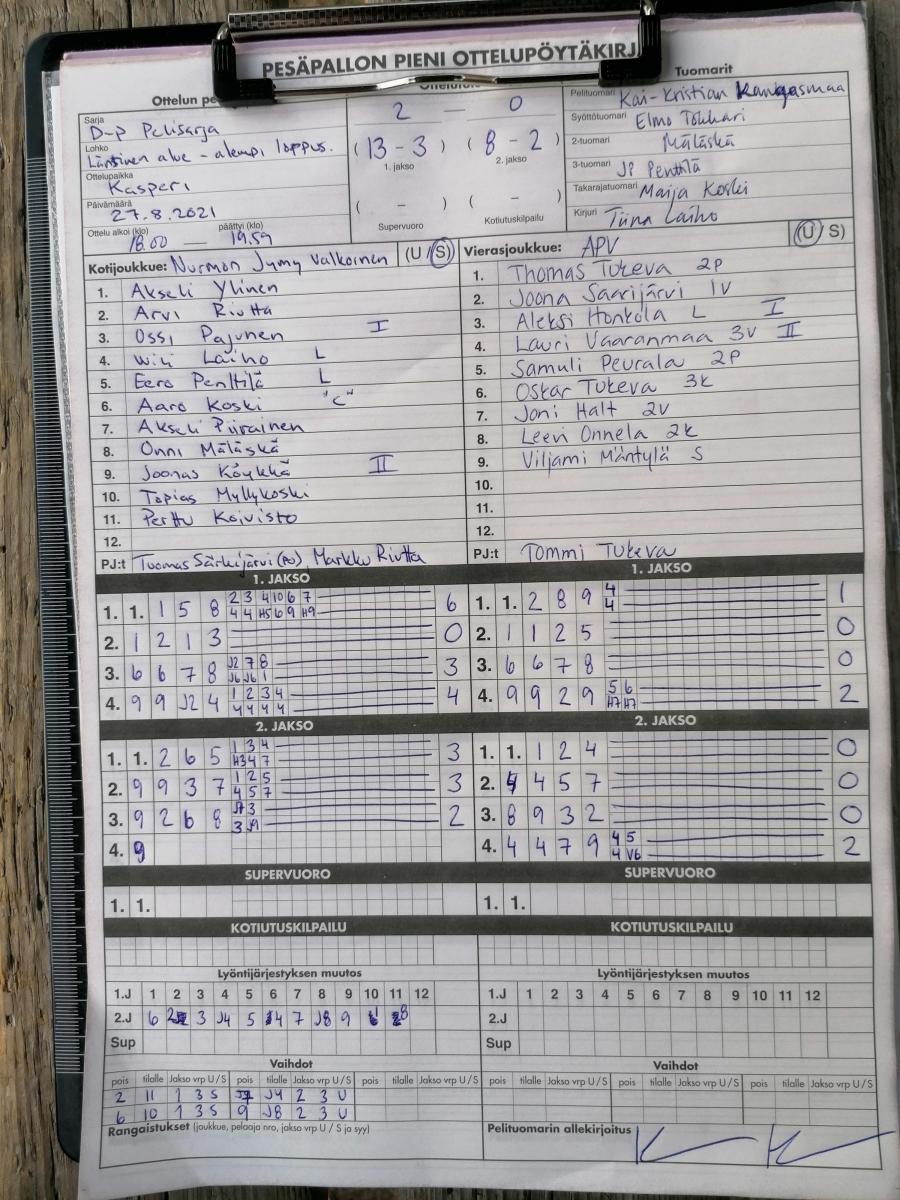 PESÄPALLON PIENI OTTELUPÖYTÄKIRJ
Ottelun pe
Sarja D-P Pelisarja
Lohko Läntinen alue - alempi loppus.
Ottelupaikka Kasperi
Päivämäärä 27.8.2021
Ottelu alkoi (klo) päättyi (klo)
18.00 — 19.59
2 — 0
(13 - 3) (8 - 2)
1. jakso 2. jakso
( - ) ( - )
Supervuoro Kotiutuskilpailu
Tuomarit
Pelituomari Kai-Kristian Kangasmaa
Syöttötuomari Elmo
2-tuomari Mäläskä
3-tuomari JP Penttilä
Takarajatuomari Maija Koski
Kirjuri Tiina Laiho
Kotijoukkue: Nurmon Jymy Valkoinen (U S)
1. Akseli Ylinen
2. Arvi Riutta
3. Ossi Pajunen I
4. Laiho L
5. Eero Penttilä L
6. Aaro Koski "C"
7. Akseli Piirainen
8. Onni Mäläskä
9. Joonas Köykkä II
10. Topias Myllykoski
11. Perttu Koivisto
12.
PJ:t Tuomas Särkijärvi (PJ) Markku Riutta
Vierasjoukkue: APV (U S)
1. Thomas Tukeva 2P
2. Joona Saarijärvi 1V
3. Aleksi Honkola L I
4. Lauri Vaaranmaa 3V II
5. Samuli Peurala 2P
6. Oskar Tukeva 3K
7. Joni Halt 2V
8. Leevi Onnela 2K
9. Viljami Mäntylä S
10.
11.
12.
PJ:t Tommi Tukeva
1. JAKSO
1. 1. 1 5 8 2 3 4 10 6 7 6
4 4 H5 6 9 H9
2. 1 2 1 3 0
3. 6 6 7 8 J2 7 8 3
J6 J6 1
4. 9 9 J2 4 1 2 3 4 4
4 4 4 4
1. JAKSO
1. 1. 2 8 9 4 1
4
2. 1 1 2 5 0
3. 6 6 7 8 0
4. 9 9 2 9 5 6 2
H7 H7
2. JAKSO
1. 1. 2 6 5 1 3 4 3
H3 4 7
2. 9 9 3 7 1 2 5 3
4 5 7
3. 9 2 6 8 3 2
3 J9
4. 9
2. JAKSO
1. 1. 1 2 4 0
2. 4 4 5 7 0
3. 8 9 3 2 0
4. 4 4 7 9 4 5 2
4 V6
SUPERVUORO
1. 1.
SUPERVUORO
1. 1.
KOTIUTUSKILPAILU
KOTIUTUSKILPAILU
Lyöntijärjestyksen muutos
1.J 1 2 3 4 5 6 7 8 9 10 11 12
2.J 6 3 J4 5 7 J8 9
Sup
Lyöntijärjestyksen muutos
1.J 1 2 3 4 5 6 7 8 9 10 11 12
2.J
Sup
Vaihdot
pois tilalle Jakso vrp U / S pois tilalle Jakso vrp U / S pois tilalle Jakso vrp U / S
2 11 1 3 S J4 2 3 U
6 10 1 3 S 9 J8 2 3 U
Vaihdot
pois tilalle Jakso vrp U / S pois tilalle Jakso vrp U / S pois tilalle Jakso vrp U / S
Rangaistukset (joukkue, pelaaja nro, jakso vrp U / S ja syy)
Pelituomarin allekirjoitus